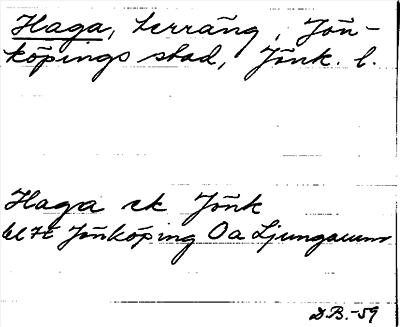 Haga, terräng, Jön-
köpings stad, Jönk. l.
Haga ek Jönk
bl 7t Jönköping Oa Ljungarum
D.B.-59